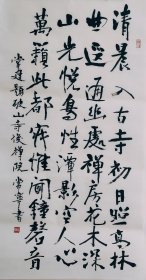 清晨入古寺初日照高林
曲逕通幽處禪房花木深
山光悅鳥性潭影空人心
萬籟此都寂惟聞鐘磬音
常建題破山寺後禪院 書